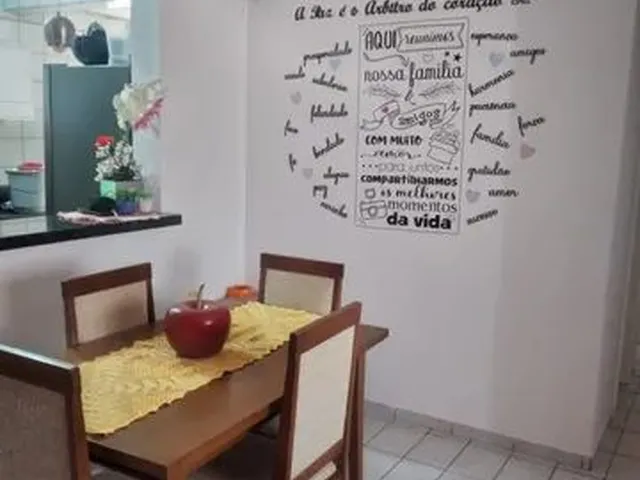 A Paz é o Árbitro do coração
AQUI reunimos
nossa família
e
amigos
COM MUITO
para juntos
COMPARTILHARMOS
os melhores
momentos
da vida
prosperidade
saúde
sabedoria
felicidade
bondade
fé
alegria
paz
carinho
esperança
amigos
harmonia
parceria
força
família
gratidão
amor
sucesso